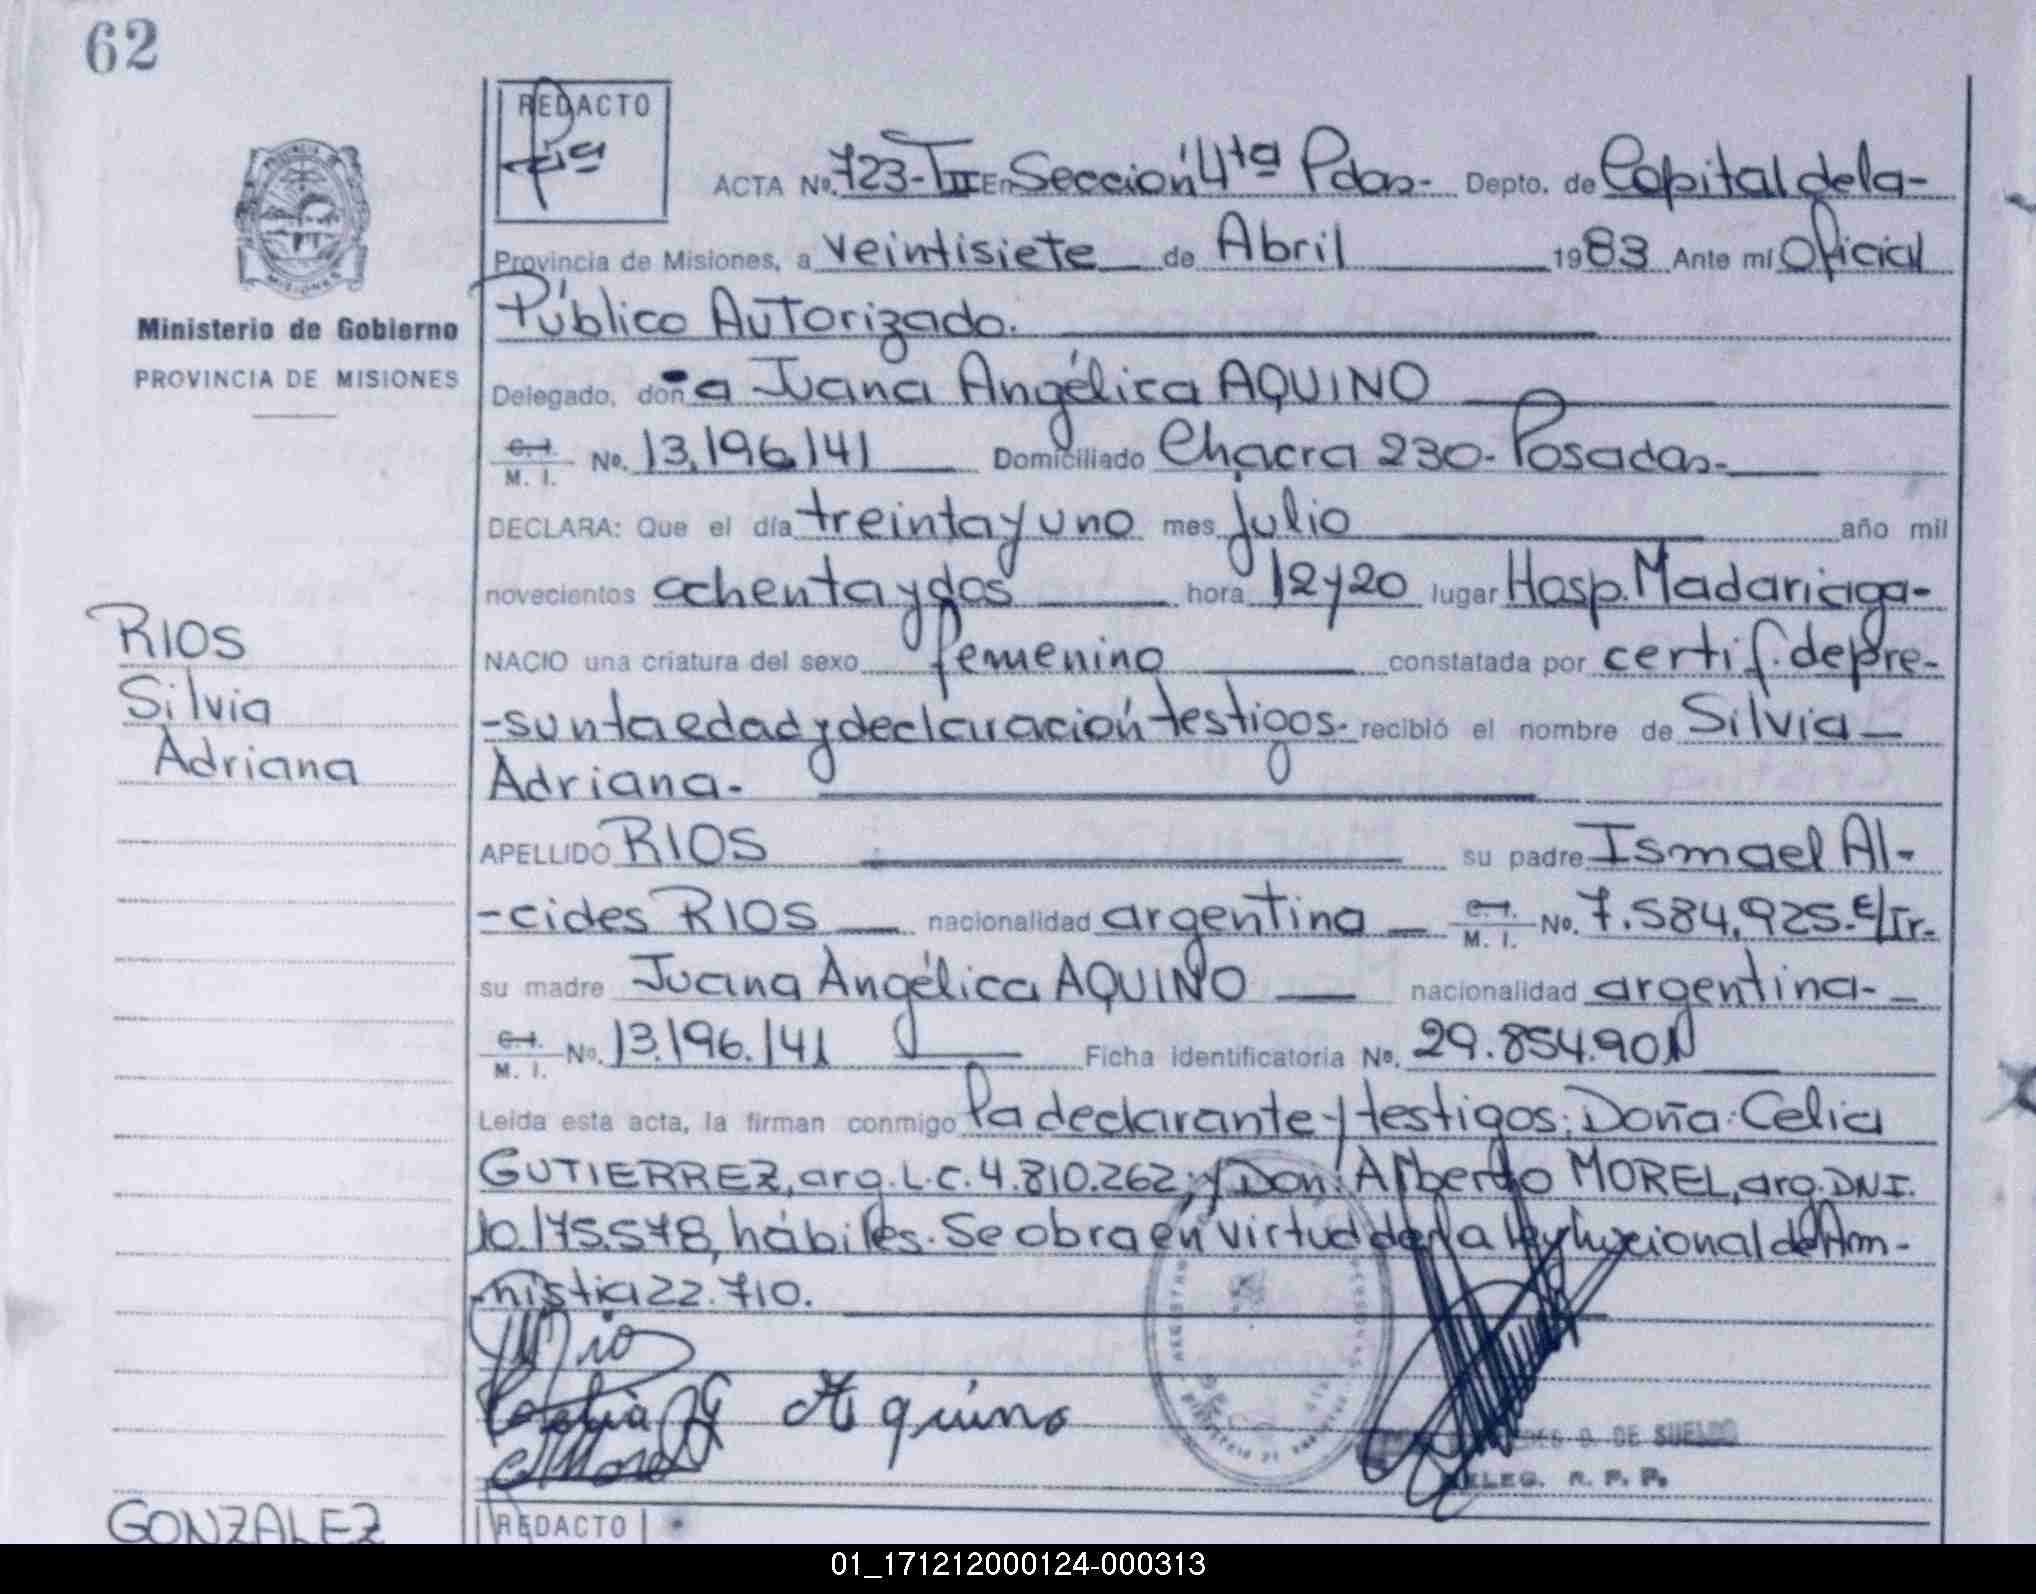 62
REDACTO
ACTA Nº. 723-TII En Sección 4ta Pdas- Depto. de Capital de la-
Provincia de Misiones, a veintisiete de Abril 1983 Ante mí Oficial
Público Autorizado.
Delegado, doña Juana Angélica AQUINO
C.I. M. I. Nº. 13.196.141 Domiciliado Chacra 230- Posadas-
DECLARA: Que el día treinta y uno mes julio año mil
novecientos ochenta y dos hora 12 y 20 lugar Hosp. Madariaga-
NACIO una criatura del sexo femenino constatada por certif. de pre-
-sunta edad y declaración testigos- recibió el nombre de Silvia
Adriana-
APELLIDO RIOS su padre Ismael Al-
-cides RIOS nacionalidad argentina C.I. M. I. Nº. 7.584.925- E/Tr-
su madre Juana Angélica AQUINO nacionalidad argentina-
C.I. M. I. Nº. 13.196.141 Ficha identificatoria Nº. 29.854.901
Leída esta acta, la firman conmigo la declarante y testigos: Doña Celia
GUTIERREZ, arg. L.C. 4.810.262, y Don Alberto MOREL, arg. DNI.
10.175.578, hábiles. Se obra en virtud de la ley nacional de Am-
nistia 22.710.
Aquino
D. DE SUELDO
DELEG. R. P. P.
PROVINCIA DE
MISIONES
Ministerio de Gobierno
PROVINCIA DE MISIONES
RIOS
Silvia
Adriana
GONZALEZ
REDACTO
01_171212000124-000313